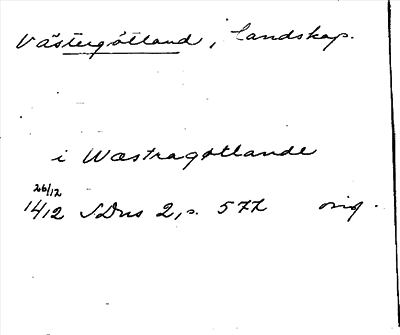 Västergötland, landskap.
i Wæstragøtlande
26/12
1412 SDns 2, s. 577 orig.